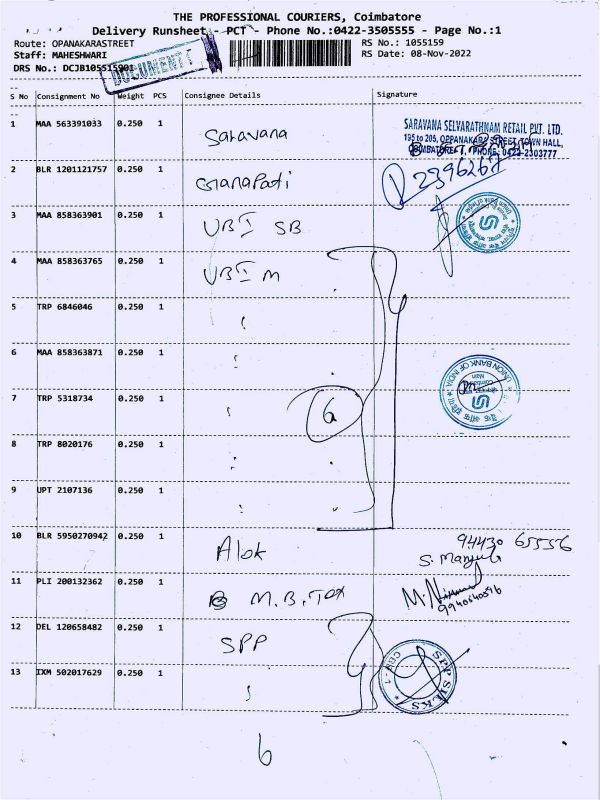 THE PROFESSIONAL COURIERS, Coimbatore
Delivery Runsheet - PCT - Phone No.:0422-3505555 - Page No.:1
Route: OPANAKARASTREET
RS No.: 1055159
Staff: MAHESHWARI
RS Date: 08-Nov-2022
DRS No.: DCJB105515901
DOCUMENT
S No Consignment No Weight PCS Consignee Details Signature
1 MAA 563391033 0.250 1 Saravana
SARAVANA SELVARATHNAM RETAIL PVT. LTD.
195 to 205, OPPANAKARA STREET, TOWN HALL,
COIMBATORE-1. PHONE: 0422-2303777
2 BLR 1201121757 0.250 1 Ganapati
3 MAA 858363901 0.250 1 UBI SB
4 MAA 858363765 0.250 1 UBI M
5 TRP 6846046 0.250 1
6 MAA 858363871 0.250 1
UNION BANK OF INDIA
7 TRP 5318734 0.250 1 6
8 TRP 8020176 0.250 1
9 UPT 2107136 0.250 1
10 BLR 5950270942 0.250 1 Alok 94430 65556
S. Manjula
11 PLI 200132362 0.250 1 M.B.Tex
9940640596
12 DEL 120658482 0.250 1 SPP
SPP SILKS
CBE-1
13 IXM 502017629 0.250 1
6